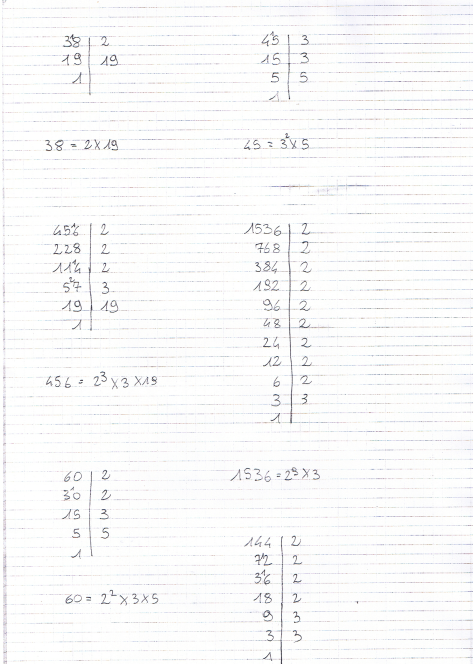 38 | 2
19 | 19
1 |
38 = 2 x 19
45 | 3
15 | 3
5 | 5
1 |
45 = 3² x 5
456 | 2
228 | 2
114 | 2
57 | 3
19 | 19
1 |
456 = 2³ x 3 x 19
1536 | 2
768 | 2
384 | 2
192 | 2
96 | 2
48 | 2
24 | 2
12 | 2
6 | 2
3 | 3
1 |
1536 = 2⁹ x 3
60 | 2
30 | 2
15 | 3
5 | 5
1 |
60 = 2² x 3 x 5
144 | 2
72 | 2
36 | 2
18 | 2
9 | 3
3 | 3
1 |